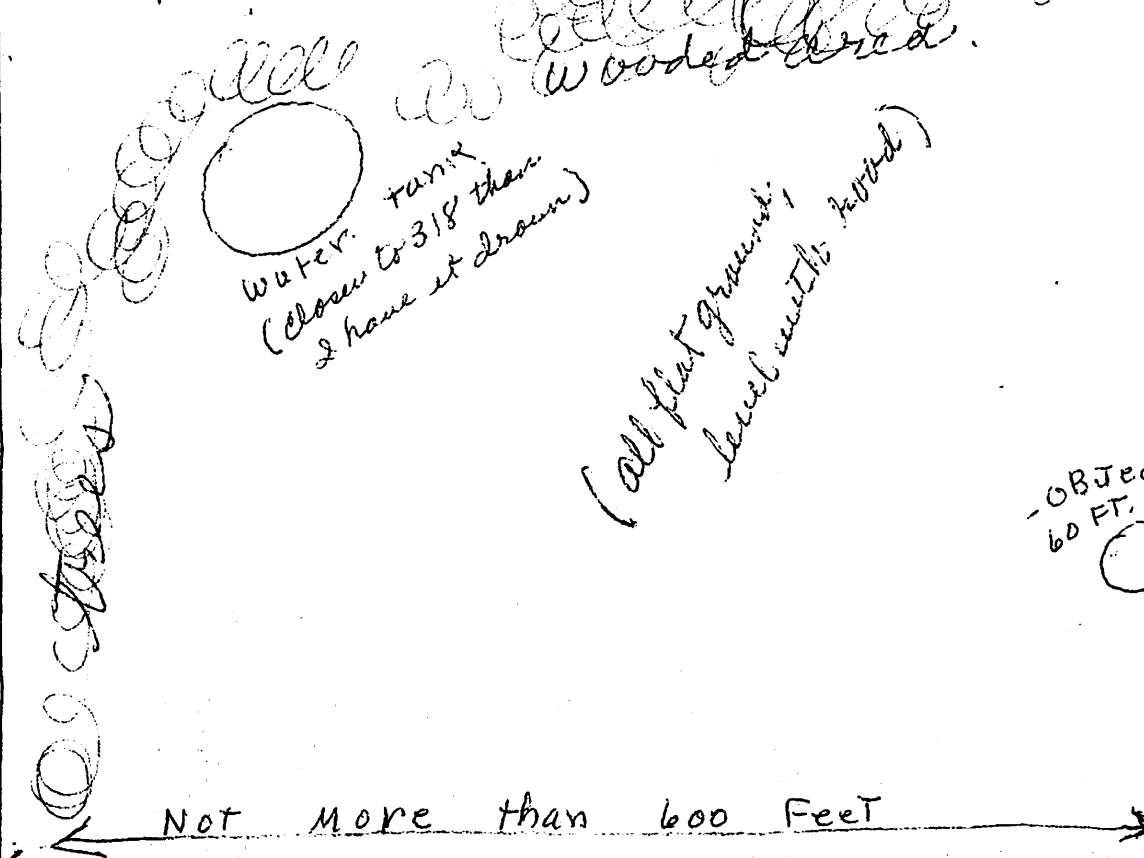 Wooded area.
Water tank
(closer to 318 than
I have it drawn)
(all flat ground,
level with road)
trees
-OBJec
60 FT.
Not More than 600 FeeT